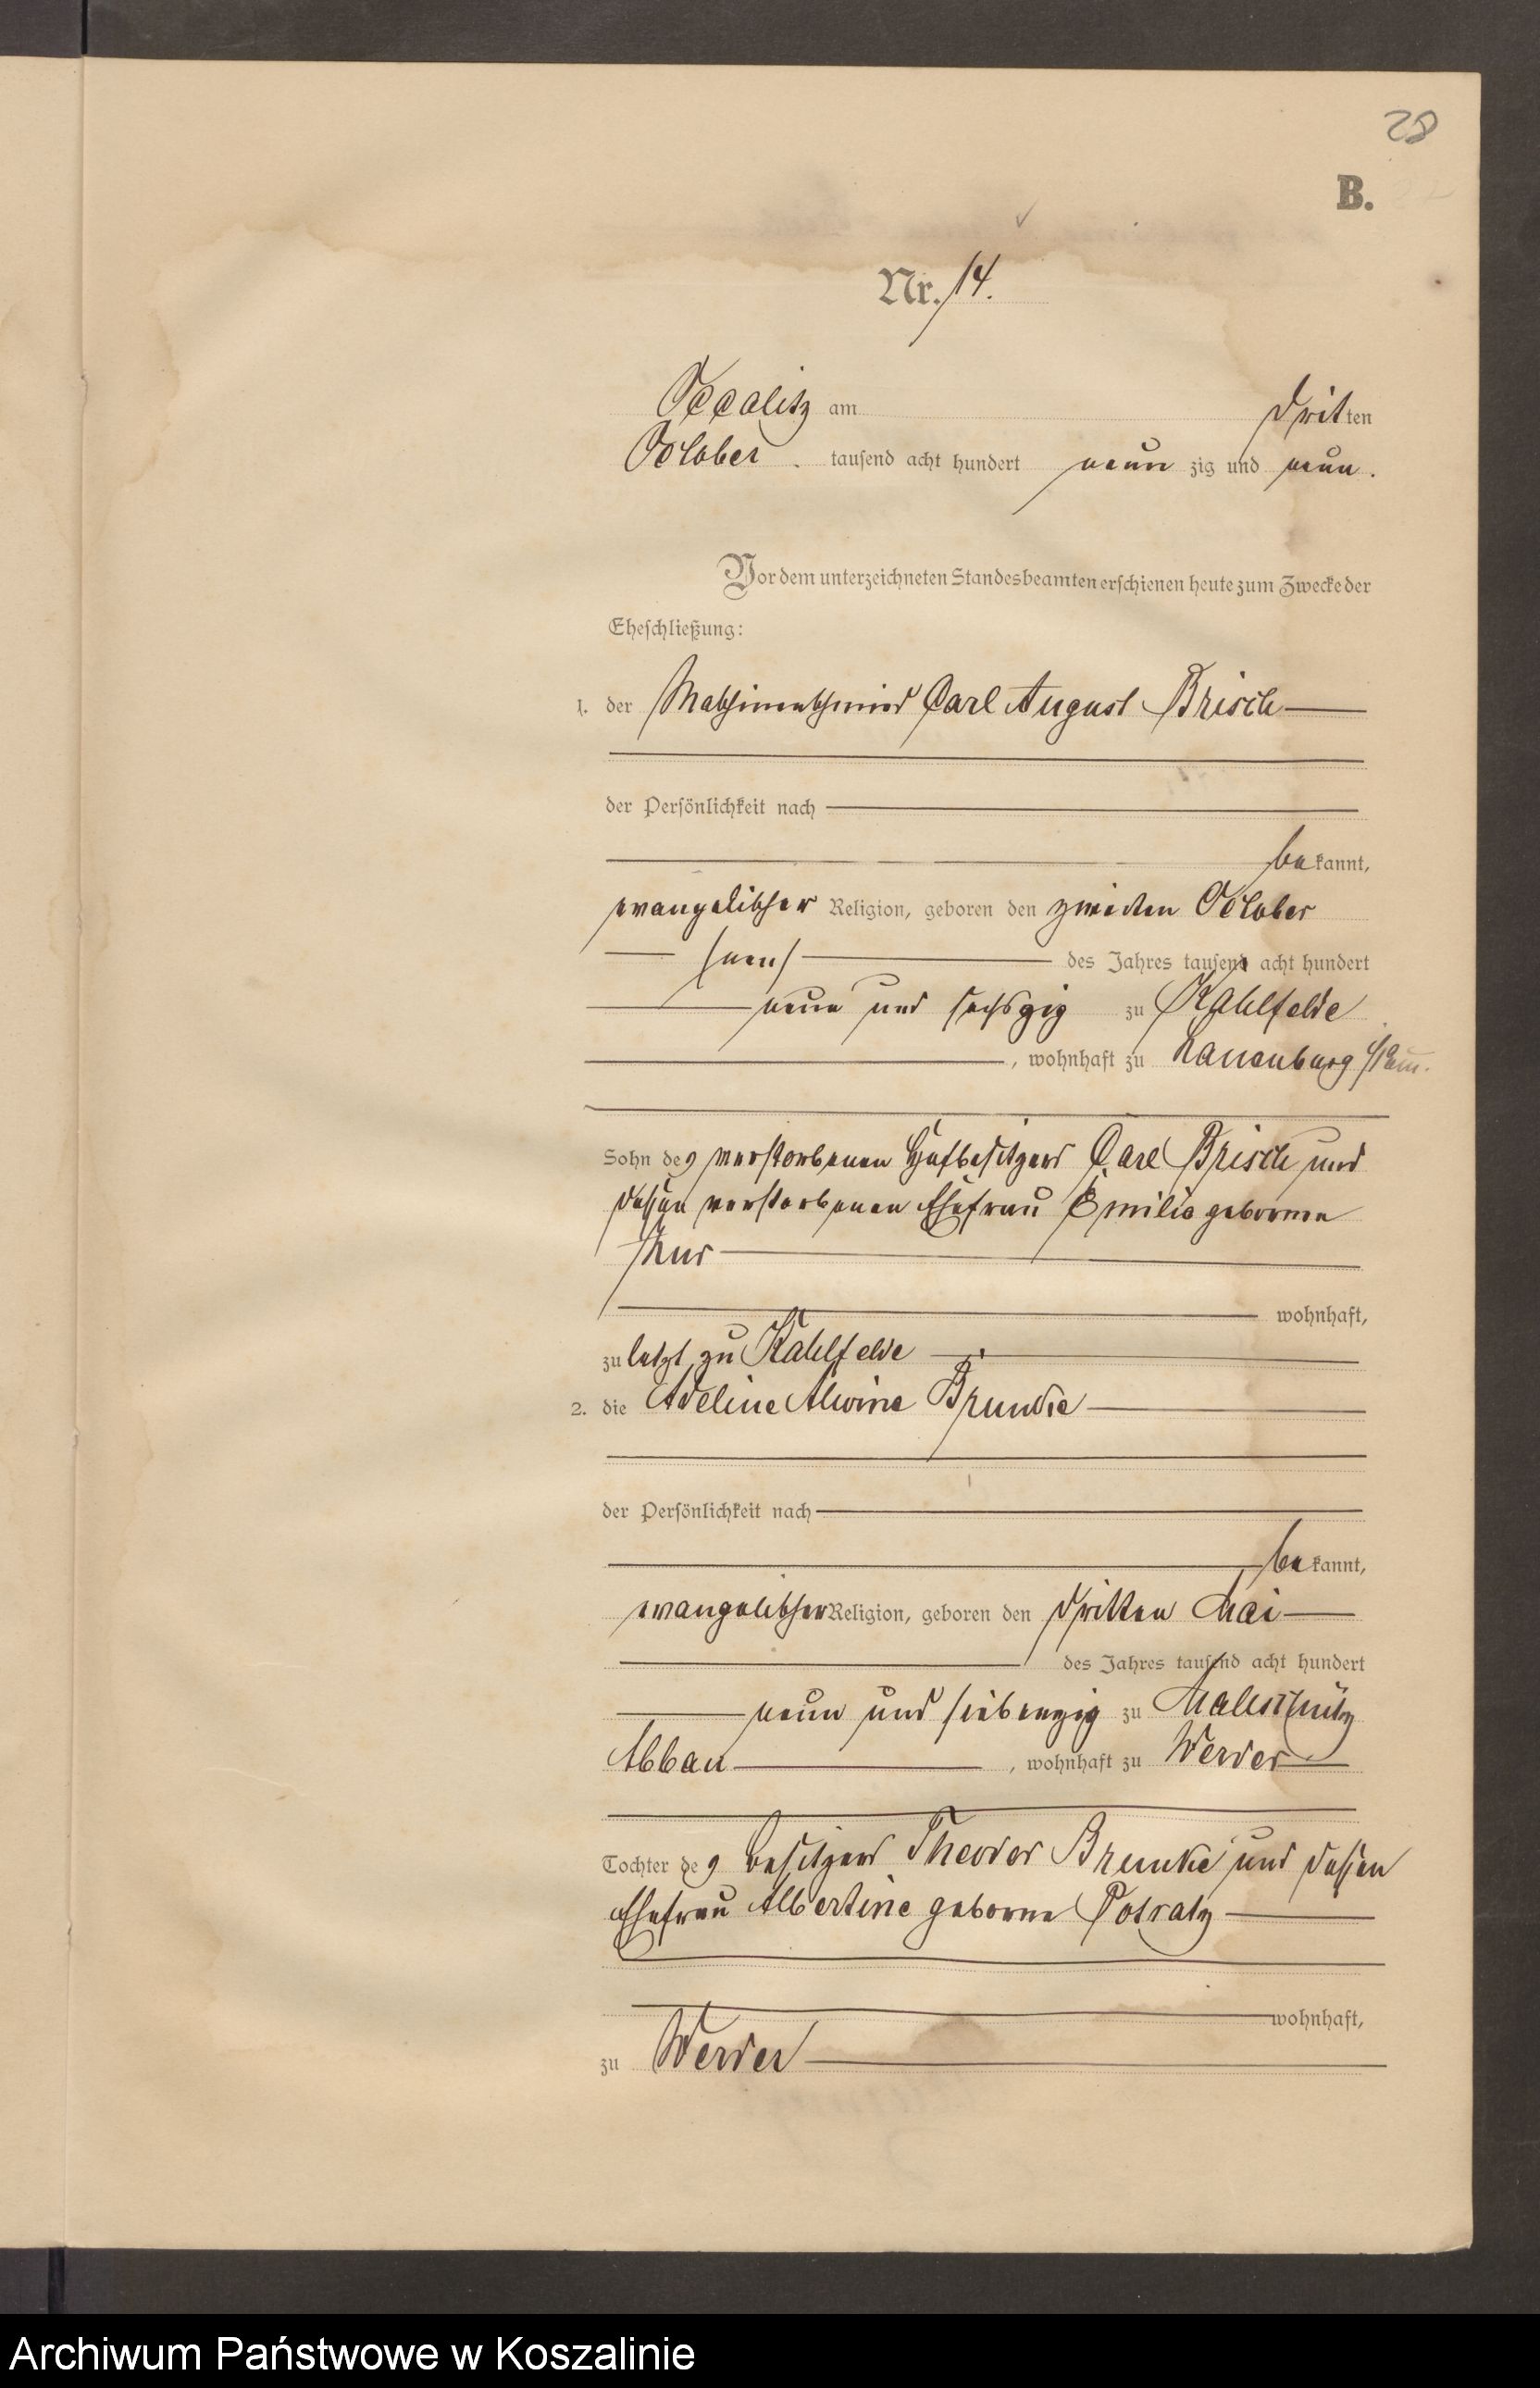 28
B.
Nr. 14.
Occalitz am dritten
October. tausend acht hundert neunzig und neun.
Vor dem unterzeichneten Standesbeamten erschienen heute zum Zwecke der
Eheschließung:
1. der Maschinenschmied Carl August Brisch
der Persönlichkeit nach
bekannt,
evangelischer Religion, geboren den zweiten October
des Jahres tausend acht hundert
neun und sechszig zu Kahlfelde
, wohnhaft zu Lauenburg Pom.
Sohn des verstorbenen Hofbesitzers Carl Brisch und
dessen verstorbenen Ehefrau Emilie geborenen
wohnhaft,
zuletzt zu Kahlfelde
2. die Adeline Alwine Brunke
der Persönlichkeit nach
bekannt,
evangelischer Religion, geboren den dritten Mai
des Jahres tausend acht hundert
neun und siebenzig zu Malschütz
Abbau, wohnhaft zu Werder
Tochter des Besitzers Theodor Brunke und dessen
Ehefrau Albertine geborne Potratz
wohnhaft,
zu Werder
Archiwum Państwowe w Koszalinie